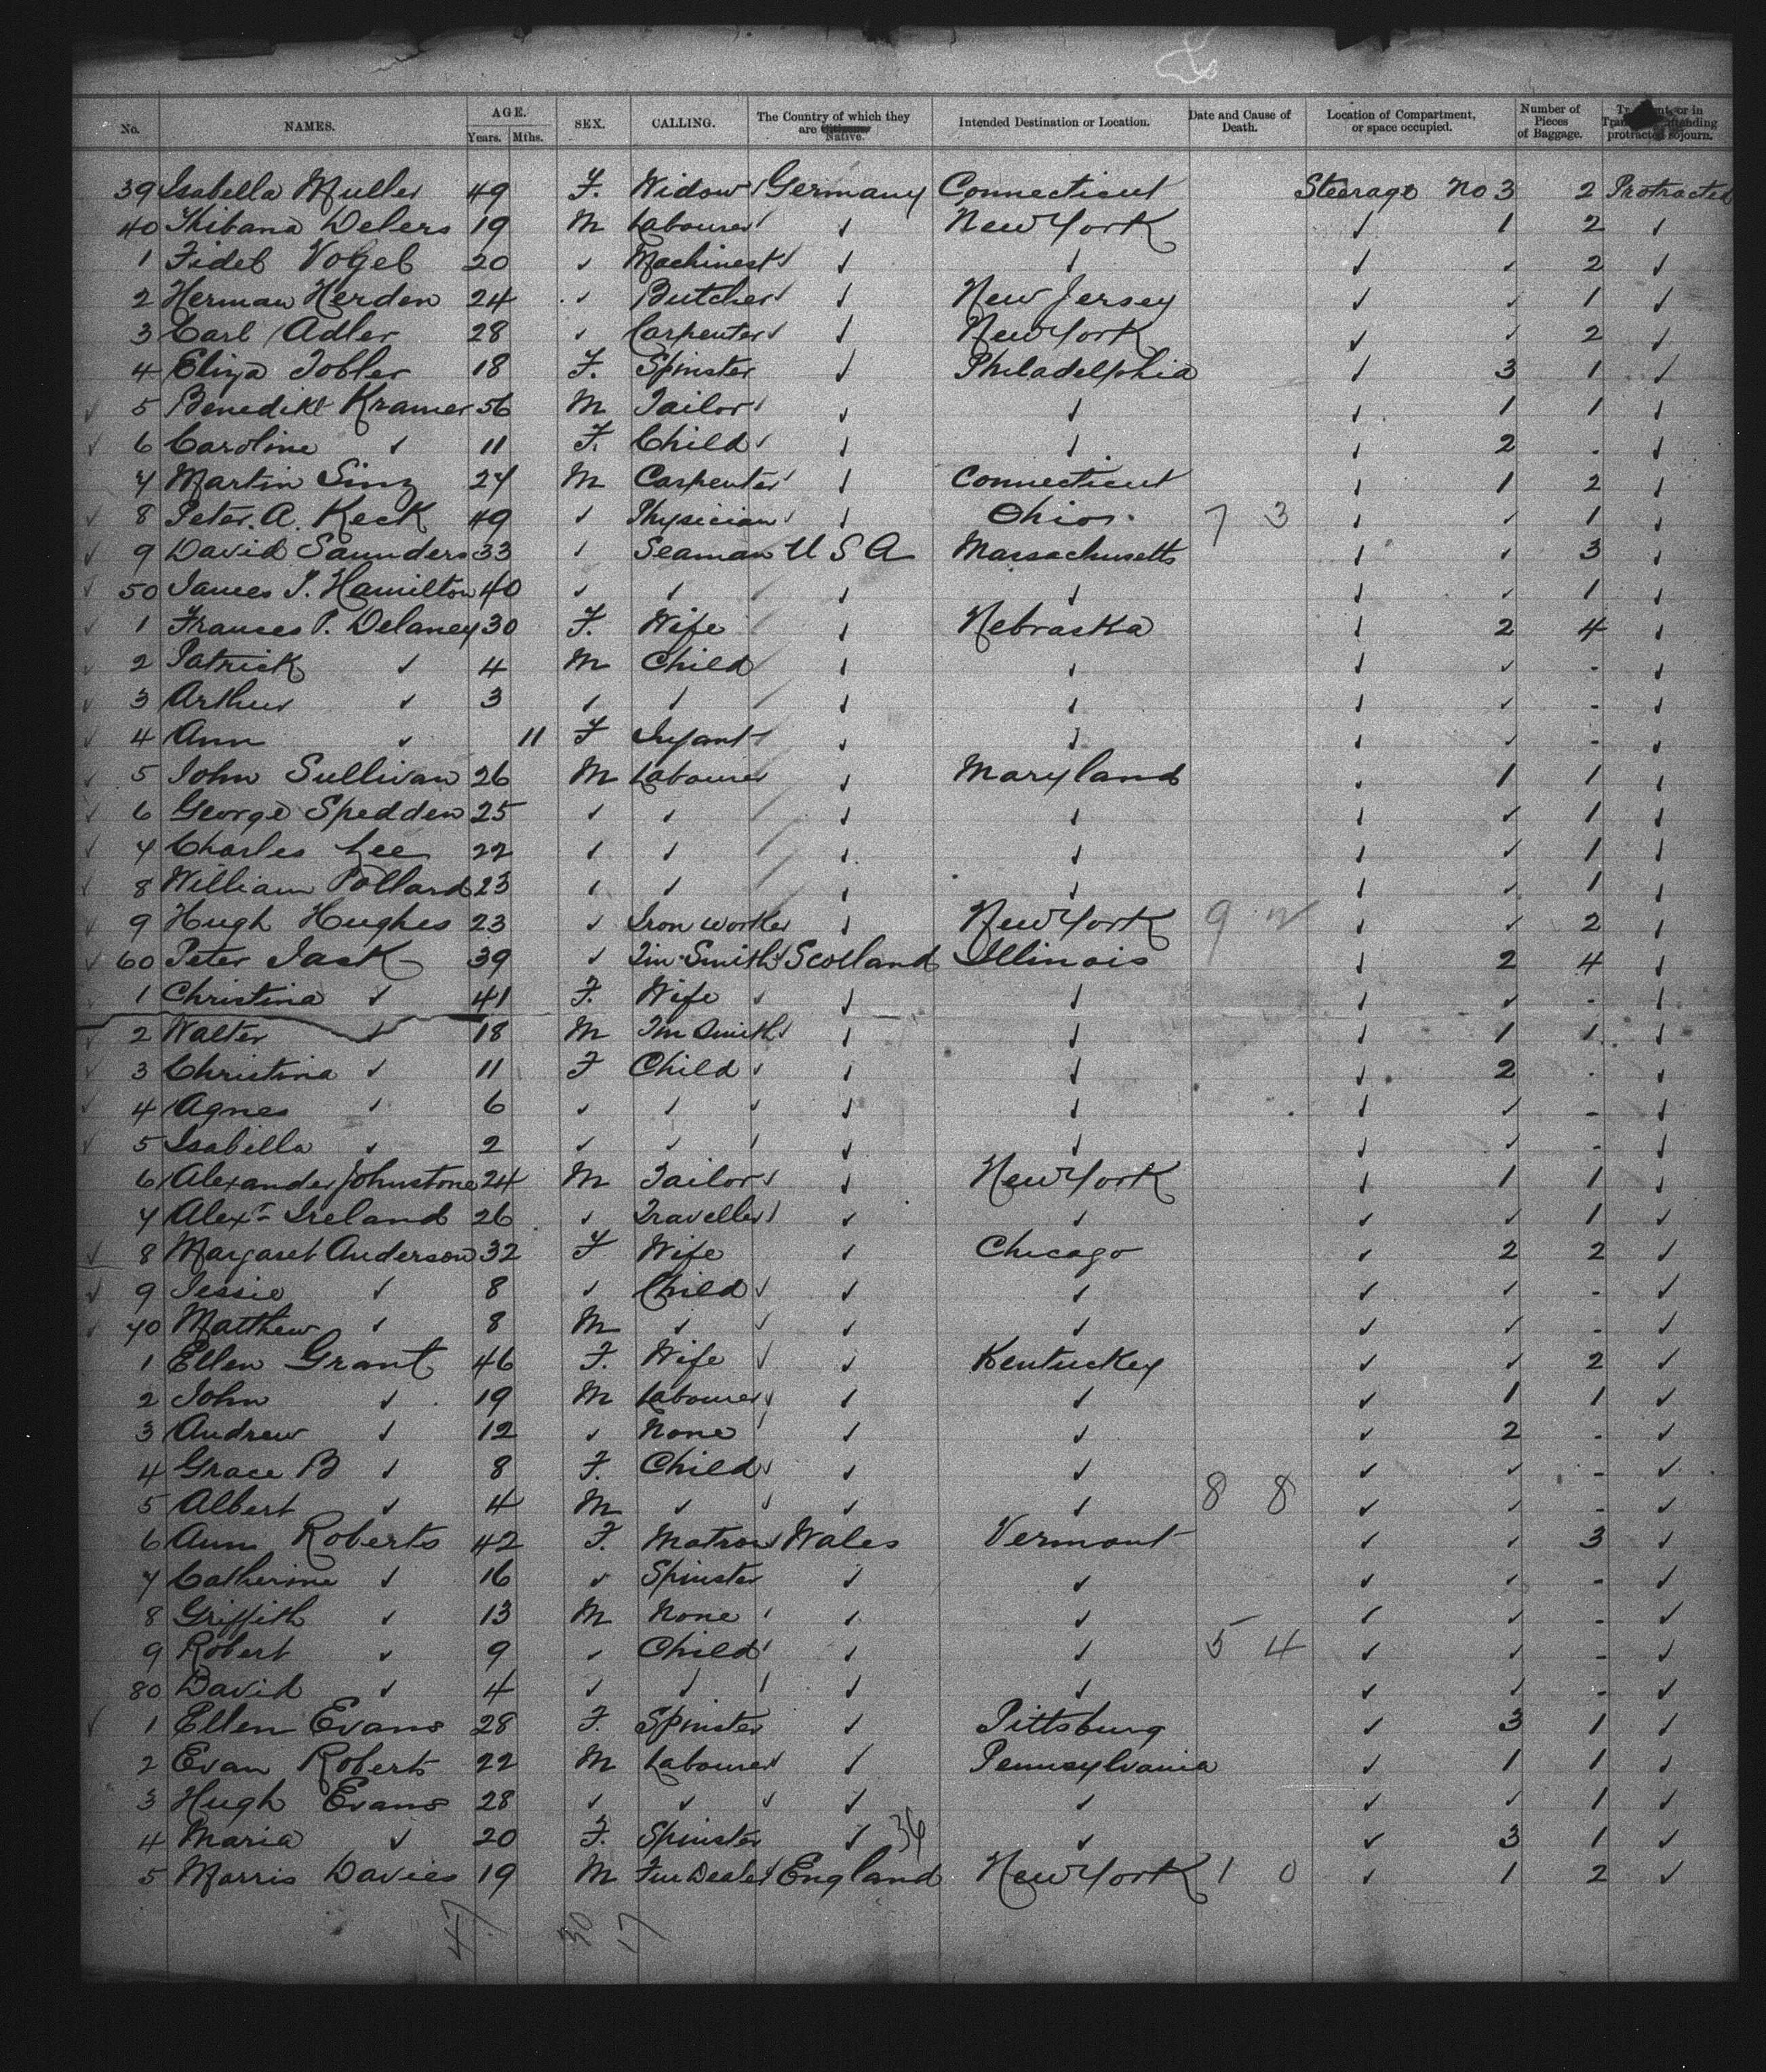 No. NAMES. AGE. Years. Mths. SEX. CALLING. The Country of which they are Citizens Native. Intended Destination or Location. Date and Cause of Death. Location of Compartment, or space occupied. Number of Pieces of Baggage. protracted sojourn.
39 Isabella Muller 49 F. Widow Germany Connecticut Steerage No 3 2 Protracted
40 Delers 19 M Labourer ✓ New York ✓ 1 2 ✓
1 Fidel Vogel 20 ✓ Machinest ✓ ✓ ✓ ✓ 2 ✓
2 Herman Herden 24 ✓ Butcher ✓ New Jersey ✓ ✓ 1 ✓
3 Carl Adler 28 ✓ Carpenter ✓ New York ✓ ✓ 2 ✓
4 Eliza Tobler 18 F. Spinster ✓ Philadelphia ✓ 3 1 ✓
5 Benedikt Kramer 56 M Tailor ✓ ✓ ✓ 1 1 ✓
6 Caroline ✓ 11 F. Child ✓ ✓ ✓ 2 - ✓
7 Martin Sinz 24 M Carpenter ✓ Connecticut ✓ 1 2 ✓
8 Peter. A. Keck 49 ✓ Physician ✓ Ohio 7 3 ✓ ✓ 1 ✓
9 David Saunders 33 ✓ Seaman U S A Massachusetts ✓ ✓ 3 ✓
50 James P. Hamilton 40 ✓ ✓ ✓ ✓ ✓ ✓ 1 ✓
1 Frances P. Delaney 30 F. Wife ✓ Nebraska ✓ 2 4 ✓
2 Patrick ✓ 4 M Child ✓ ✓ ✓ ✓ - ✓
3 Arthur ✓ 3 ✓ ✓ ✓ ✓ ✓ ✓ - ✓
4 Ann ✓ 11 F Infant ✓ ✓ ✓ ✓ - ✓
5 John Sullivan 26 M Labourer ✓ Maryland ✓ 1 1 ✓
6 George Spedden 25 ✓ ✓ ✓ ✓ ✓ ✓ 1 ✓
7 Charles Lee 22 ✓ ✓ ✓ ✓ ✓ ✓ 1 ✓
8 William Pollard 23 ✓ ✓ ✓ ✓ ✓ ✓ 1 ✓
9 Hugh Hughes 23 ✓ Iron worker ✓ New York 9 ✓ ✓ 2 ✓
60 Peter Jack 39 ✓ Tin Smith Scotland Illinois ✓ 2 4 ✓
1 Christina ✓ 41 F. Wife ✓ ✓ ✓ ✓ - ✓
2 Walter ✓ 18 M Tin Smith ✓ ✓ ✓ 1 1 ✓
3 Christina ✓ 11 F Child ✓ ✓ ✓ 2 - ✓
4 Agnes ✓ 6 ✓ ✓ ✓ ✓ ✓ ✓ - ✓
5 Isabella ✓ 2 ✓ ✓ ✓ ✓ ✓ ✓ - ✓
6 Alexander Johnstone 24 M Tailor ✓ New York ✓ 1 1 ✓
7 Alexr Ireland 26 ✓ Traveller ✓ ✓ ✓ ✓ 1 ✓
8 Margaret Anderson 32 F Wife ✓ Chicago ✓ 2 2 ✓
9 Jessie ✓ 8 ✓ Child ✓ ✓ ✓ ✓ - ✓
70 Matthew ✓ 8 M ✓ ✓ ✓ ✓ ✓ - ✓
1 Ellen Grant 46 F. Wife ✓ Kentuckey ✓ ✓ 2 ✓
2 John ✓ 19 M Labourer ✓ ✓ ✓ 1 1 ✓
3 Andrew ✓ 12 ✓ None ✓ ✓ ✓ 2 - ✓
4 Grace B ✓ 8 F. Child ✓ ✓ ✓ ✓ - ✓
5 Albert ✓ 4 M ✓ ✓ ✓ 8 8 ✓ ✓ - ✓
6 Ann Roberts 42 F. Matron Wales Vermont ✓ ✓ 3 ✓
7 Catherine ✓ 16 ✓ Spinster ✓ ✓ ✓ ✓ - ✓
8 Griffith ✓ 13 M None ✓ ✓ ✓ ✓ - ✓
9 Robert ✓ 9 ✓ Child ✓ ✓ 5 4 ✓ ✓ - ✓
80 David ✓ 4 ✓ ✓ ✓ ✓ ✓ ✓ - ✓
1 Ellen Evans 28 F. Spinster ✓ Pittsburg ✓ 3 1 ✓
2 Evan Roberts 22 M Labourer ✓ Pennsylvania ✓ 1 1 ✓
3 Hugh Evans 28 ✓ ✓ ✓ ✓ ✓ ✓ 1 ✓
4 Maria ✓ 20 F. Spinster ✓ 34 ✓ ✓ 3 1 ✓
5 Morris Davies 19 M Fur Dealer England New York 1 0 ✓ 1 2 ✓
47 30 17